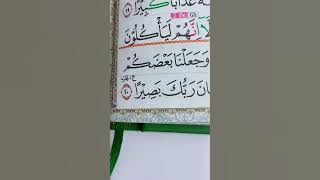 ـهُ عَذَابًا كَبِيرًا ١٩
لَّا إِنَّهُمْ لَيَأْكُلُونَ
وَجَعَلْنَا بَعْضَكُمْ
ـانَ رَبُّكَ بَصِيرًا ٢٠